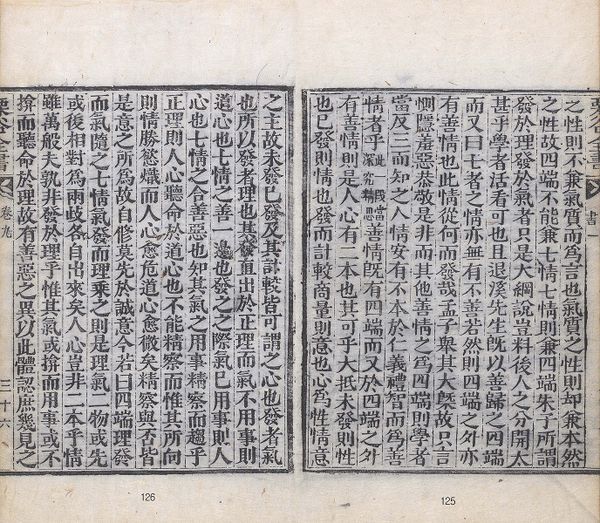 栗谷全書 書一
之性則不兼氣質而爲言也氣質之性則却兼本然
之性故四端不能兼七情七情則兼四端朱子所謂
發於理發於氣者只是大綱說豈料後人之分開太
甚乎學者活看可也且退溪先生旣以善歸之四端
而又曰七者之情亦無有不善若然則四端之外亦
有善情也此情從何而發哉孟子擧其大槩故只言
惻隱羞惡恭敬是非而其他善情之爲四端則學者
當反三而知之人情安有不本於仁義禮智而爲善
情者乎此一段當深究精思善情旣有四端而又於四端之外
有善情則是人心有二本也其可乎大抵未發則性
也已發則情也發而計較商量則意也心爲性情意
之主故未發已發及其計較皆可謂之心也發者氣
也所以發者理也其發直出於正理而氣不用事則
道心也七情之善一邊也發之之際氣已用事則人
心也七情之合善惡也知其氣之用事精察而趨乎
正理則人心聽命於道心也不能精察而惟其所向
則情勝慾熾而人心愈危道心愈微矣精察與否皆
是意之所爲故自修莫先於誠意今若曰四端理發
而氣隨之七情氣發而理乘之則是理氣二物或先
或後相對爲兩歧各自出來矣人心豈非二本乎情
雖萬般夫孰非發於理乎惟其氣或揜而用事或不
揜而聽命於理故有善惡之異以此體認庶幾見之
栗谷全書 卷九 三十六
126
125